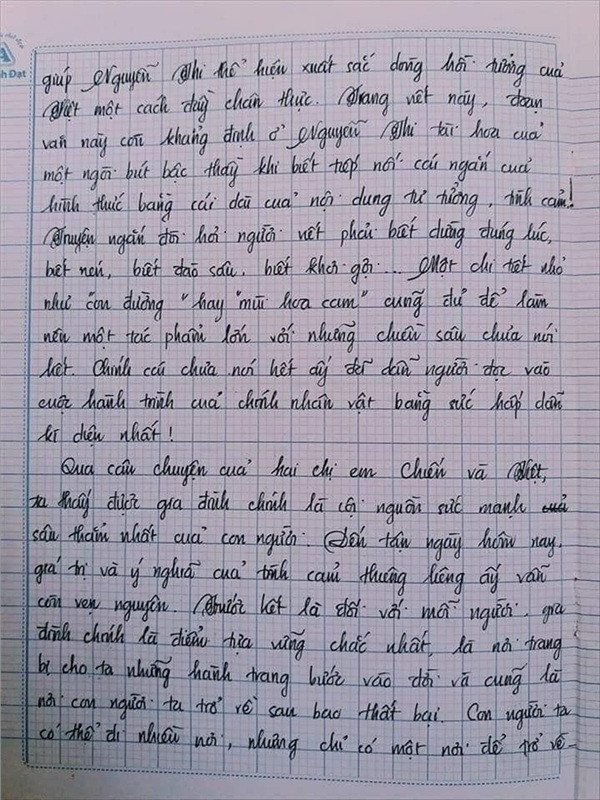 nh Đạt
giúp Nguyễn Thi thể hiện xuất sắc dòng hồi tưởng của
Việt một cách đầy chân thực. Trang viết này, đoạn
văn này còn khẳng định ở Nguyễn Thi tài hoa của
một ngòi bút bậc thầy khi biết tiếp nối cái ngắn của
hình thức bằng cái dài của nội dung tư tưởng, tình cảm!
Truyện ngắn đòi hỏi người viết phải biết dừng đúng lúc,
biết nén, biết đào sâu, biết khơi gợi... Một chi tiết nhỏ
như "con đường" hay "mùi hoa cam" cũng đủ để làm
nên một tác phẩm lớn với những chiều sâu chưa nói
hết. Chính cái chưa nói hết ấy để dẫn người đọc vào
cuộc hành trình của chính nhân vật bằng sức hấp dẫn
kì diệu nhất!
Qua câu chuyện của hai chị em Chiến và Việt,
ta thấy được gia đình chính là cội nguồn sức mạnh của
sâu thẳm nhất của con người. Đến tận ngày hôm nay,
giá trị và ý nghĩa của tình cảm thiêng liêng ấy vẫn
còn vẹn nguyên. Trước hết là đối với mỗi người, gia
đình chính là điểm tựa vững chắc nhất, là nơi trang
bị cho ta những hành trang bước vào đời và cũng là
nơi con người ta trở về sau bao thất bại. Con người ta
có thể đi nhiều nơi, nhưng chỉ có một nơi để trở về-